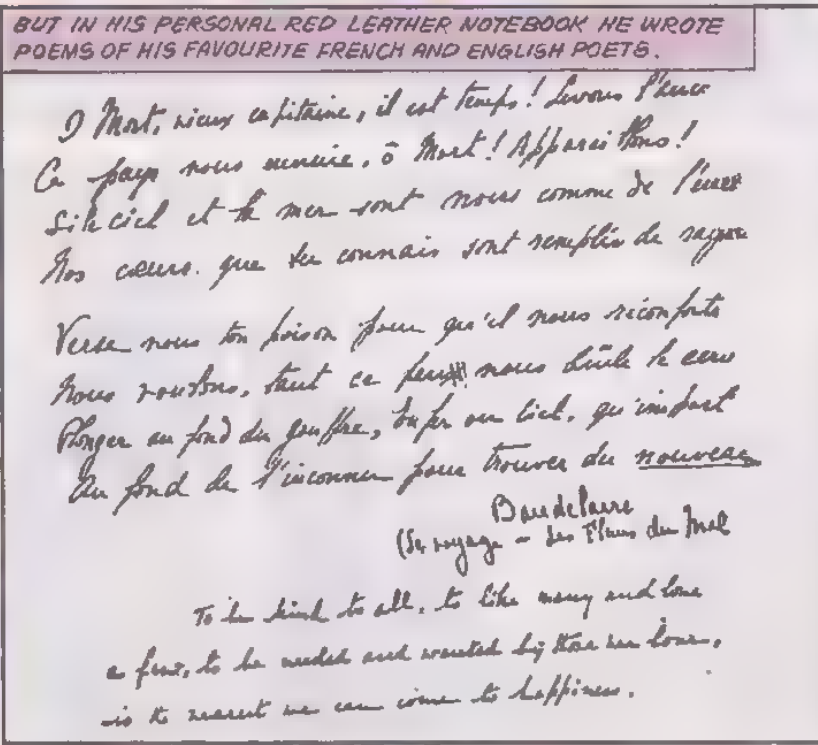 BUT IN HIS PERSONAL RED LEATHER NOTEBOOK HE WROTE
POEMS OF HIS FAVOURITE FRENCH AND ENGLISH POETS.
O Mort, vieux capitaine, il est temps! Levons l'ancr
Ce pays nous ennuie, ô Mort! Appareillons!
Si le ciel et la mer sont noirs comme de l'encre
Nos cœurs que tu connais sont remplis de rayon
Verse nous ton poison pour qu'il nous réconforte
Nous voulons, tant ce feu nous brûle le cerv
Plonger au fond du gouffre, Enfer ou Ciel, qu'import
Au fond de l'inconnu pour trouver du nouveau
Baudelaire
(Le voyage - Les Fleurs du Mal
To be kind to all, to like many and love
a few, to be needed and wanted by those we love,
is the nearest we can come to happiness.